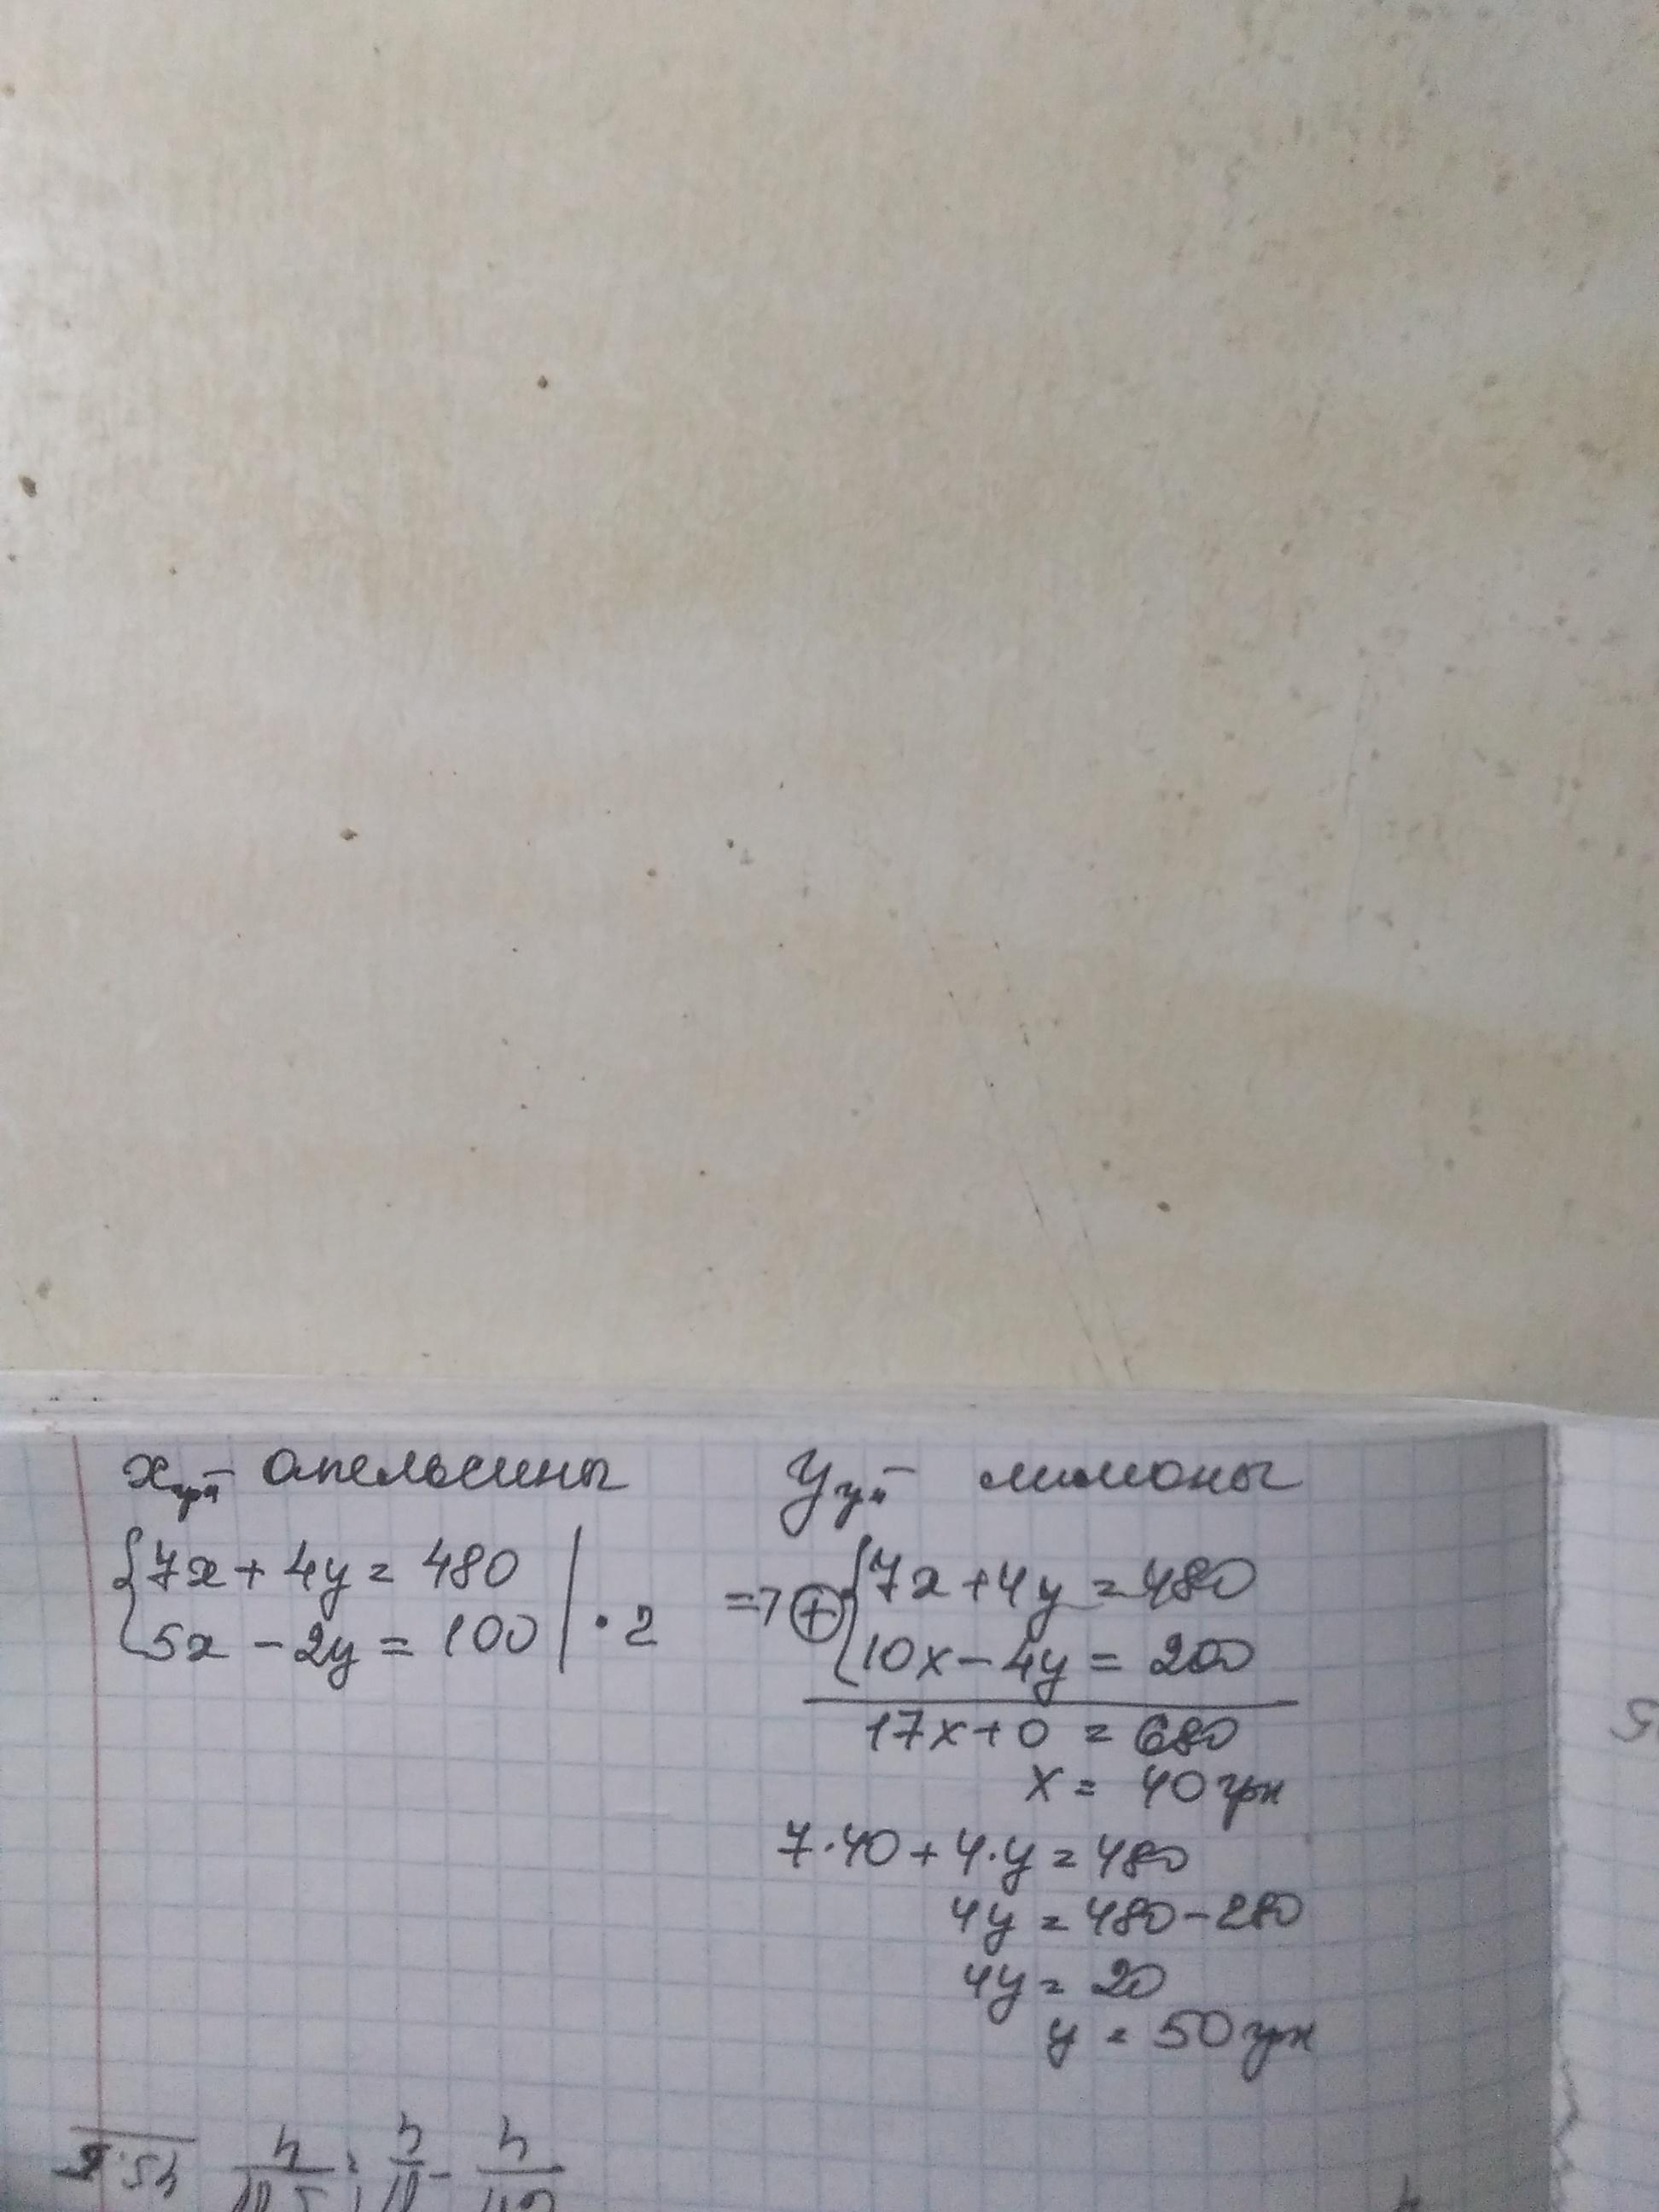 x грн – апельсины y грн – лимоны
{7x + 4y = 480 | => ⊕ {7x + 4y = 480
{5x – 2y = 100 | · 2 {10x – 4y = 200
17x + 0 = 680
x = 40 грн
7·40 + 4·y = 480
4y = 480 – 280
4y = 20
y = 50 грн